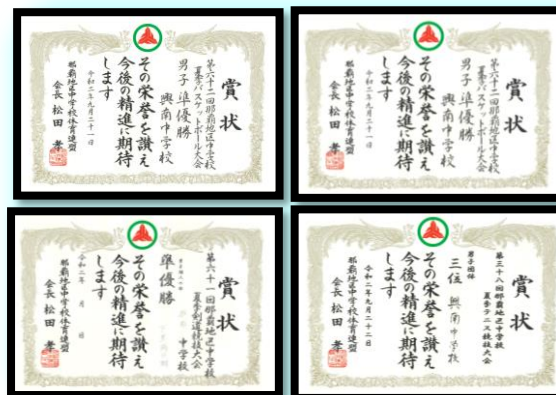 賞状
第六十二回那覇地区中学校
夏季バスケットボール大会
男子 準優勝
興南中学校
その栄誉を讃え
今後の精進に期待
します
令和二年九月二十一日
那覇地区中学校体育連盟
会長 松田 孝
賞状
第六十二回那覇地区中学校
夏季バスケットボール大会
男子 準優勝
興南中学校
その栄誉を讃え
今後の精進に期待
します
令和二年九月二十一日
那覇地区中学校体育連盟
会長 松田 孝
賞状
第六十一回那覇地区中学校
夏季剣道競技大会
準優勝
中学校
その栄誉を讃え
今後の精進に期待
します
令和二年 月 日
那覇地区中学校体育連盟
会長 松田 孝
賞状
第三十八回那覇地区中学校
夏季テニス競技大会
男子団体
三位 興南中学校
その栄誉を讃え
今後の精進に期待
します
令和二年九月二十二日
那覇地区中学校体育連盟
会長 松田 孝